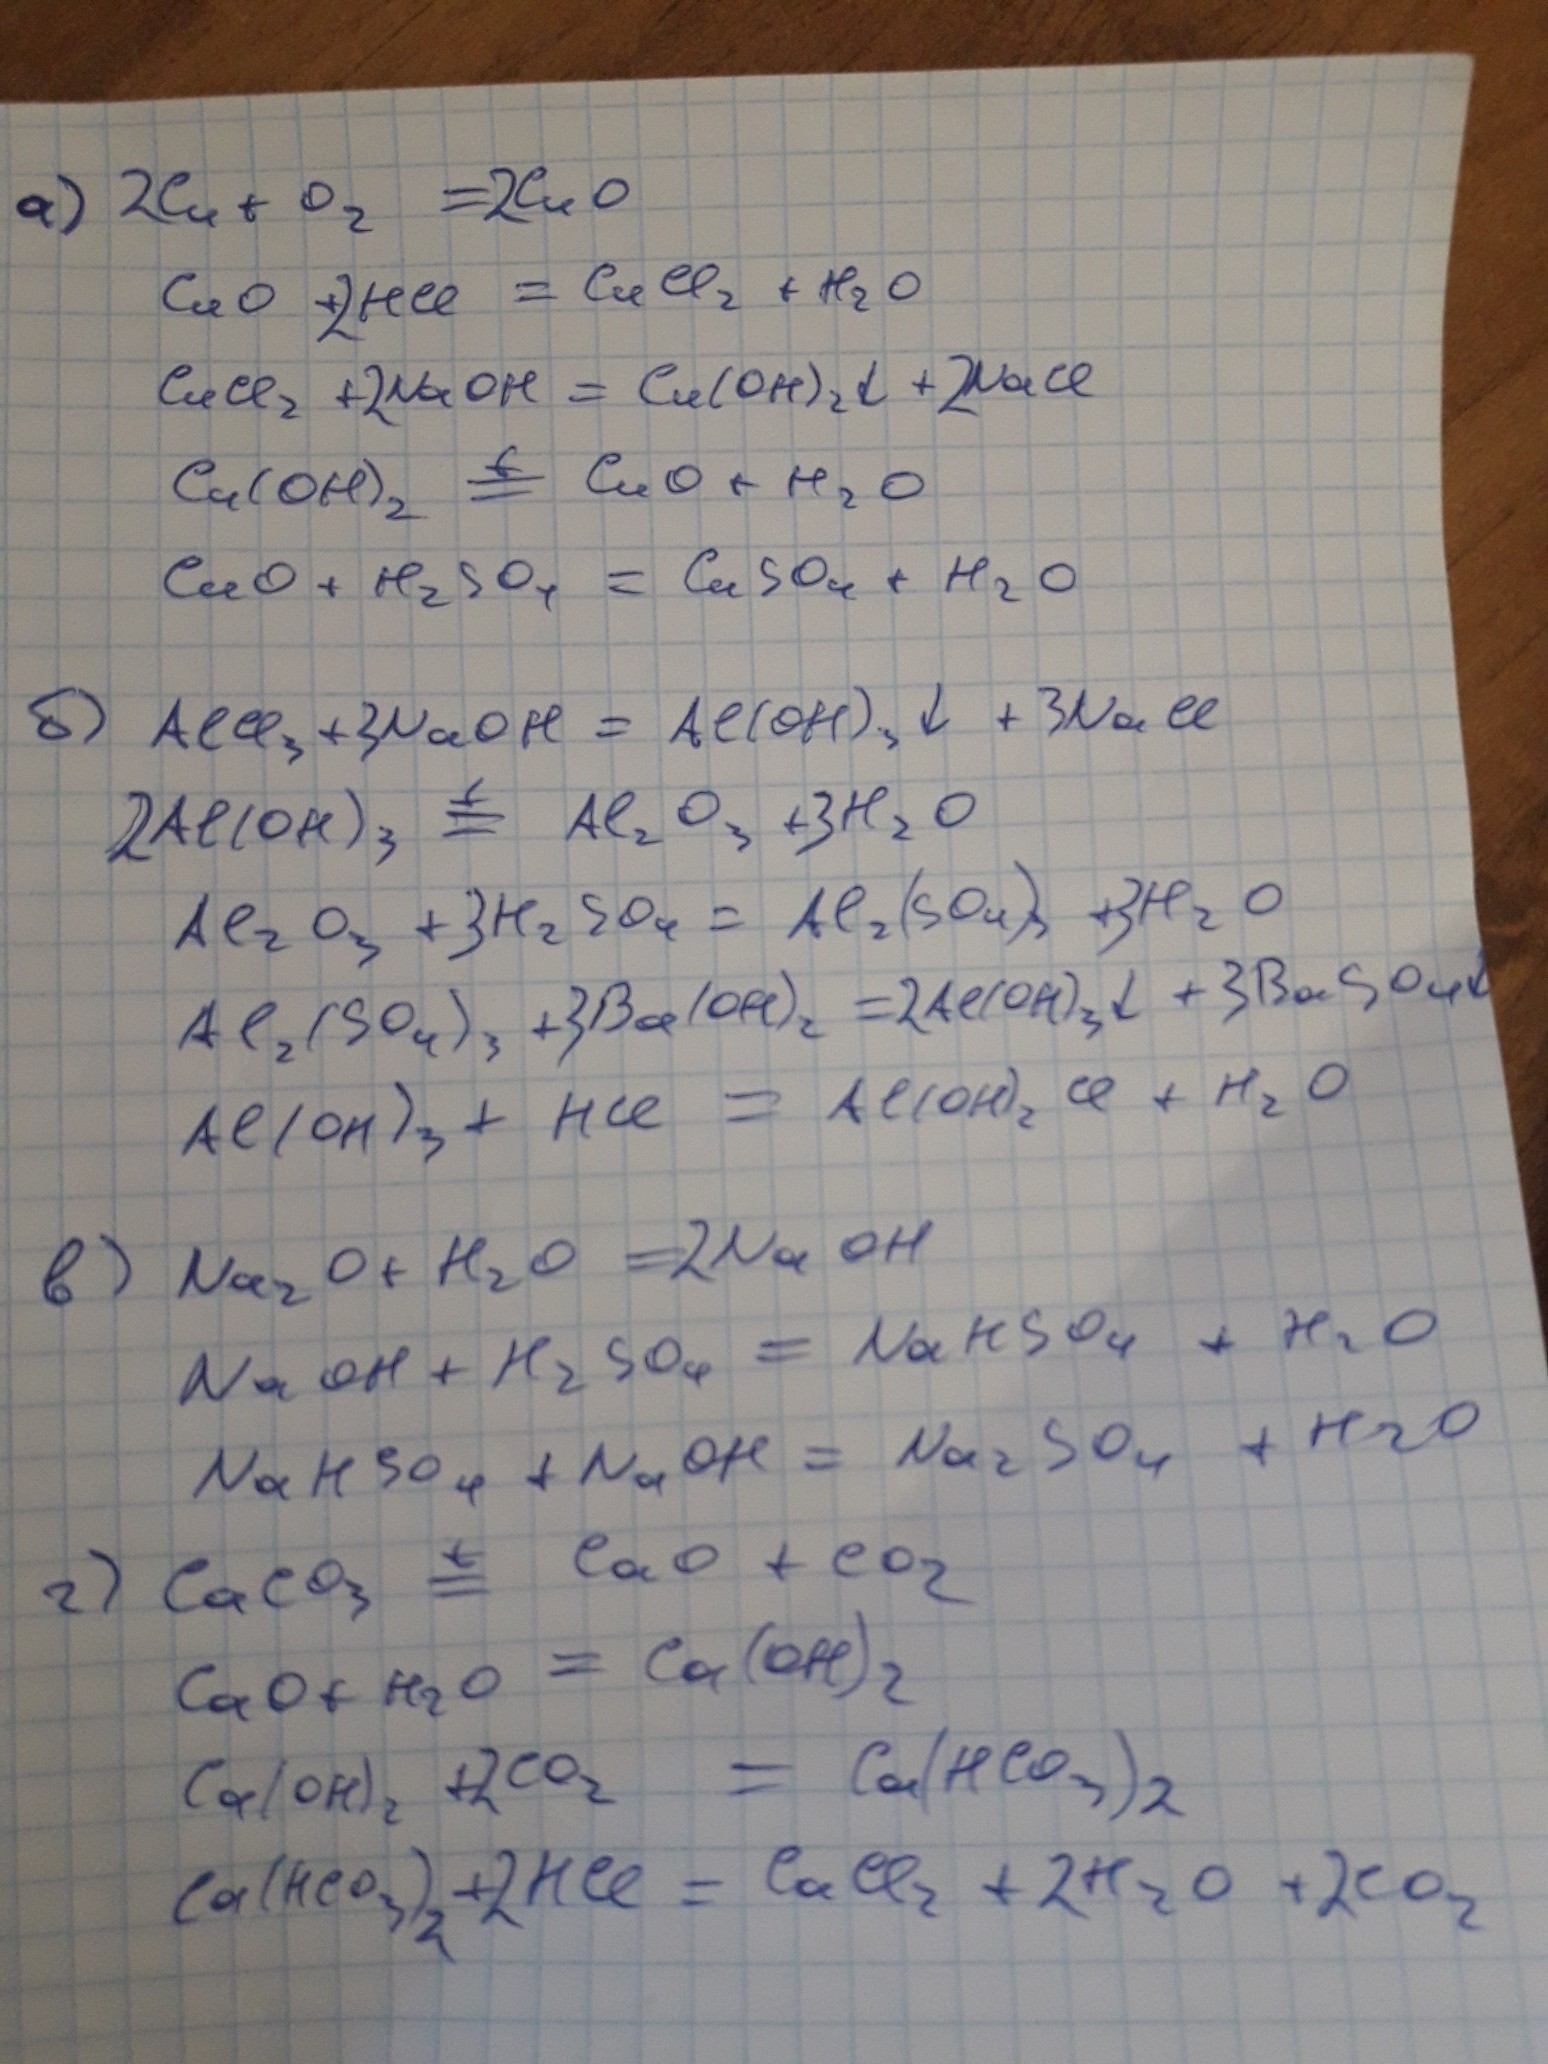 а) 2Cu + O₂ = 2CuO
CuO + 2HCl = CuCl₂ + H₂O
CuCl₂ + 2NaOH = Cu(OH)₂↓ + 2NaCl
Cu(OH)₂ =ᵗ CuO + H₂O
CuO + H₂SO₄ = CuSO₄ + H₂O
б) AlCl₃ + 3NaOH = Al(OH)₃↓ + 3NaCl
2Al(OH)₃ =ᵗ Al₂O₃ + 3H₂O
Al₂O₃ + 3H₂SO₄ = Al₂(SO₄)₃ + 3H₂O
Al₂(SO₄)₃ + 3Ba(OH)₂ = 2Al(OH)₃↓ + 3BaSO₄↓
Al(OH)₃ + HCl = Al(OH)₂Cl + H₂O
в) Na₂O + H₂O = 2NaOH
NaOH + H₂SO₄ = NaHSO₄ + H₂O
NaHSO₄ + NaOH = Na₂SO₄ + H₂O
г) CaCO₃ =ᵗ CaO + CO₂
CaO + H₂O = Ca(OH)₂
Ca(OH)₂ + 2CO₂ = Ca(HCO₃)₂
Ca(HCO₃)₂ + 2HCl = CaCl₂ + 2H₂O + 2CO₂